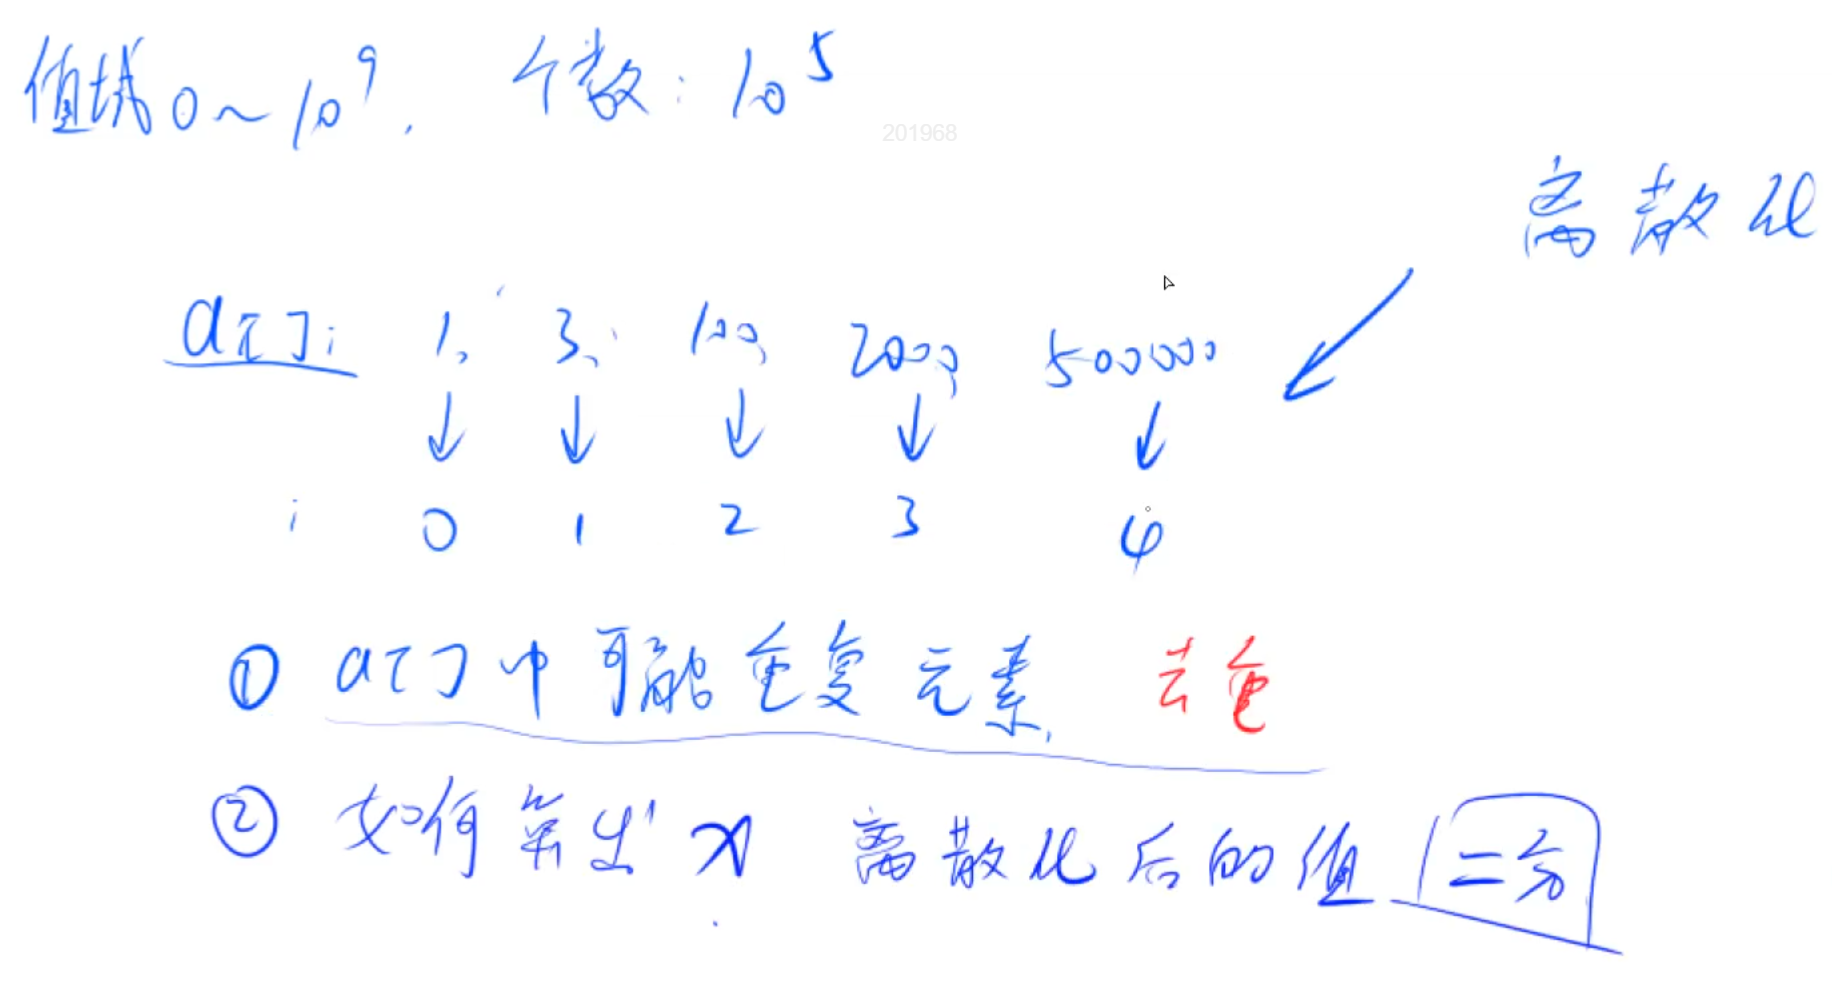 值域 0~10^9, 个数: 10^5
201968
离散化
a[]: 1, 3, 100, 2000, 500000
i 0 1 2 3 4
① a[]中可能重复元素, 去重
② 如何算出 x 离散化后的值 二分